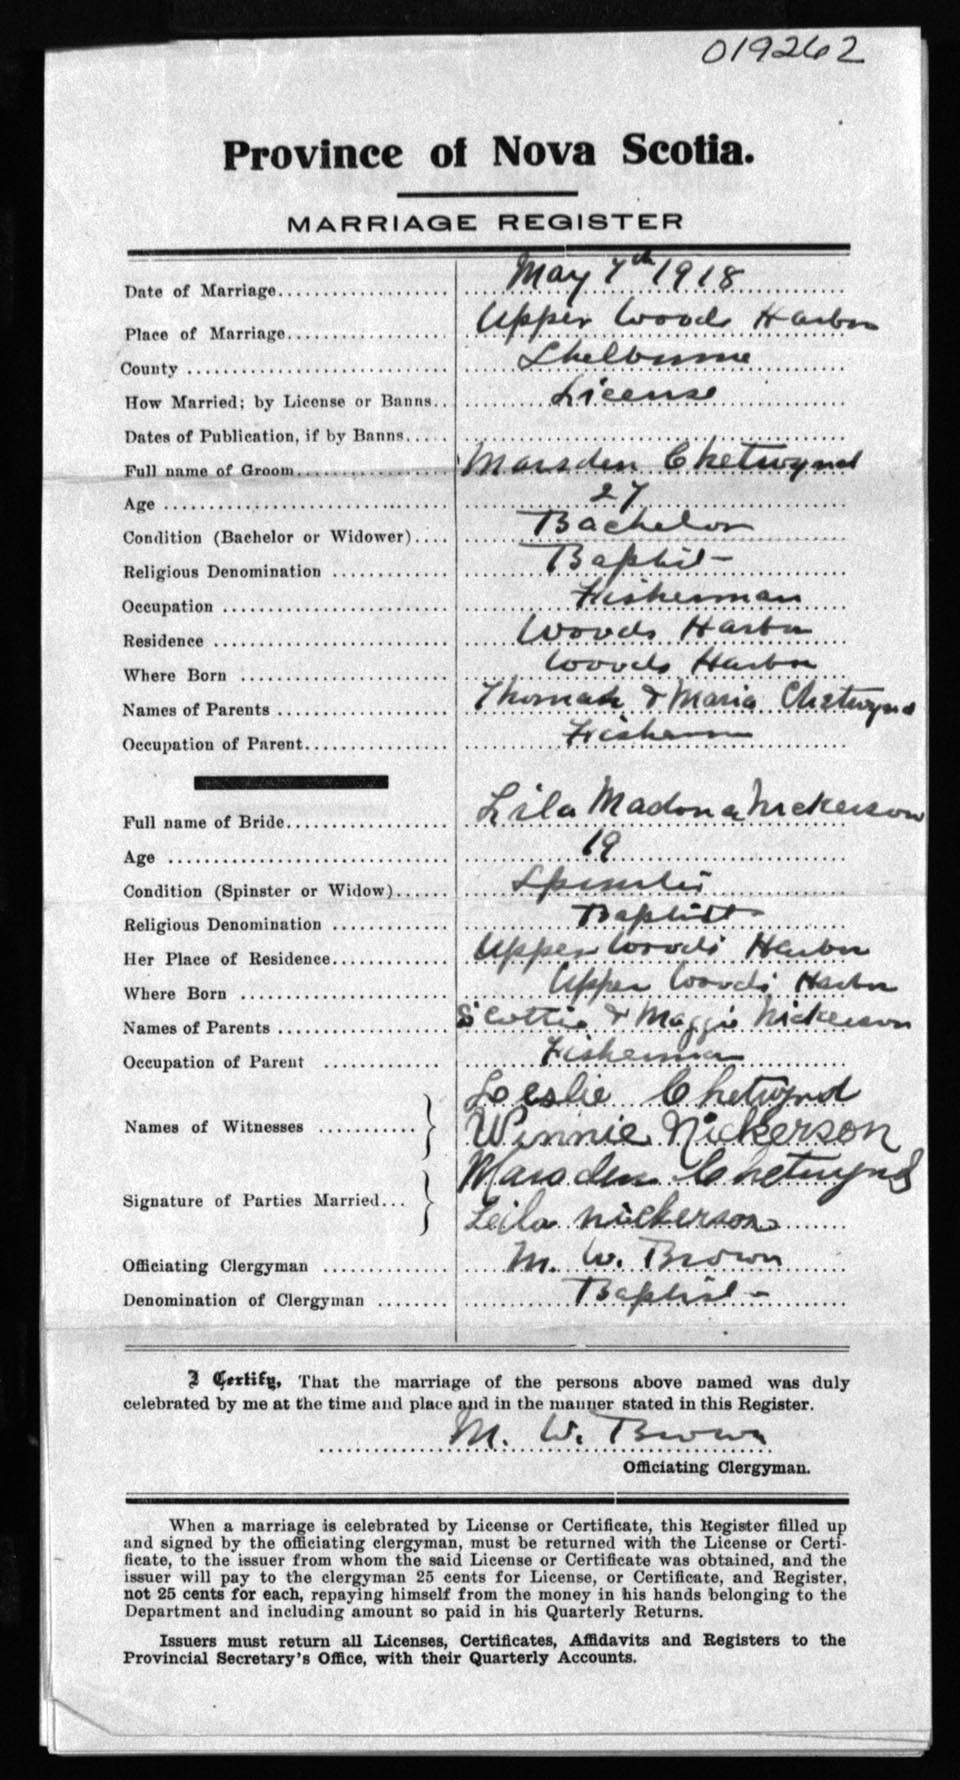 019262
Province of Nova Scotia.
MARRIAGE REGISTER
Date of Marriage.................... May 7th 1918
Place of Marriage.................. Upper Woods Harbor
County ............................. Shelburne
How Married; by License or Banns.. License
Dates of Publication, if by Banns.....
Full name of Groom.................. Marsden Chetwynd
Age ................................ 27
Condition (Bachelor or Widower).... Bachelor
Religious Denomination ............. Baptist
Occupation ......................... Fisherman
Residence .......................... Woods Harbor
Where Born ......................... Woods Harbor
Names of Parents ................... Thomas & Maria Chetwynd
Occupation of Parent................ Fisherman
Full name of Bride.................. Lila Madona Nickerson
Age ................................ 19
Condition (Spinster or Widow)...... Spinster
Religious Denomination ............. Baptist
Her Place of Residence............. Upper Woods Harbor
Where Born ......................... Upper Woods Harbor
Names of Parents ................... Scottie & Maggie Nickerson
Occupation of Parent ............. Fisherman
Names of Witnesses ........... Leslie Chetwynd
Winnie Nickerson
Signature of Parties Married... Marsden Chetwynd
Leila Nickerson
Officiating Clergyman .............. M. W. Brown
Denomination of Clergyman ........ Baptist
I Certify, That the marriage of the persons above named was duly
celebrated by me at the time and place and in the manner stated in this Register.
M. W. Brown
Officiating Clergyman.
When a marriage is celebrated by License or Certificate, this Register filled up
and signed by the officiating clergyman, must be returned with the License or Certi-
ficate, to the issuer from whom the said License or Certificate was obtained, and the
issuer will pay to the clergyman 25 cents for License, or Certificate, and Register,
not 25 cents for each, repaying himself from the money in his hands belonging to the
Department and including amount so paid in his Quarterly Returns.
Issuers must return all Licenses, Certificates, Affidavits and Registers to the
Provincial Secretary's Office, with their Quarterly Accounts.